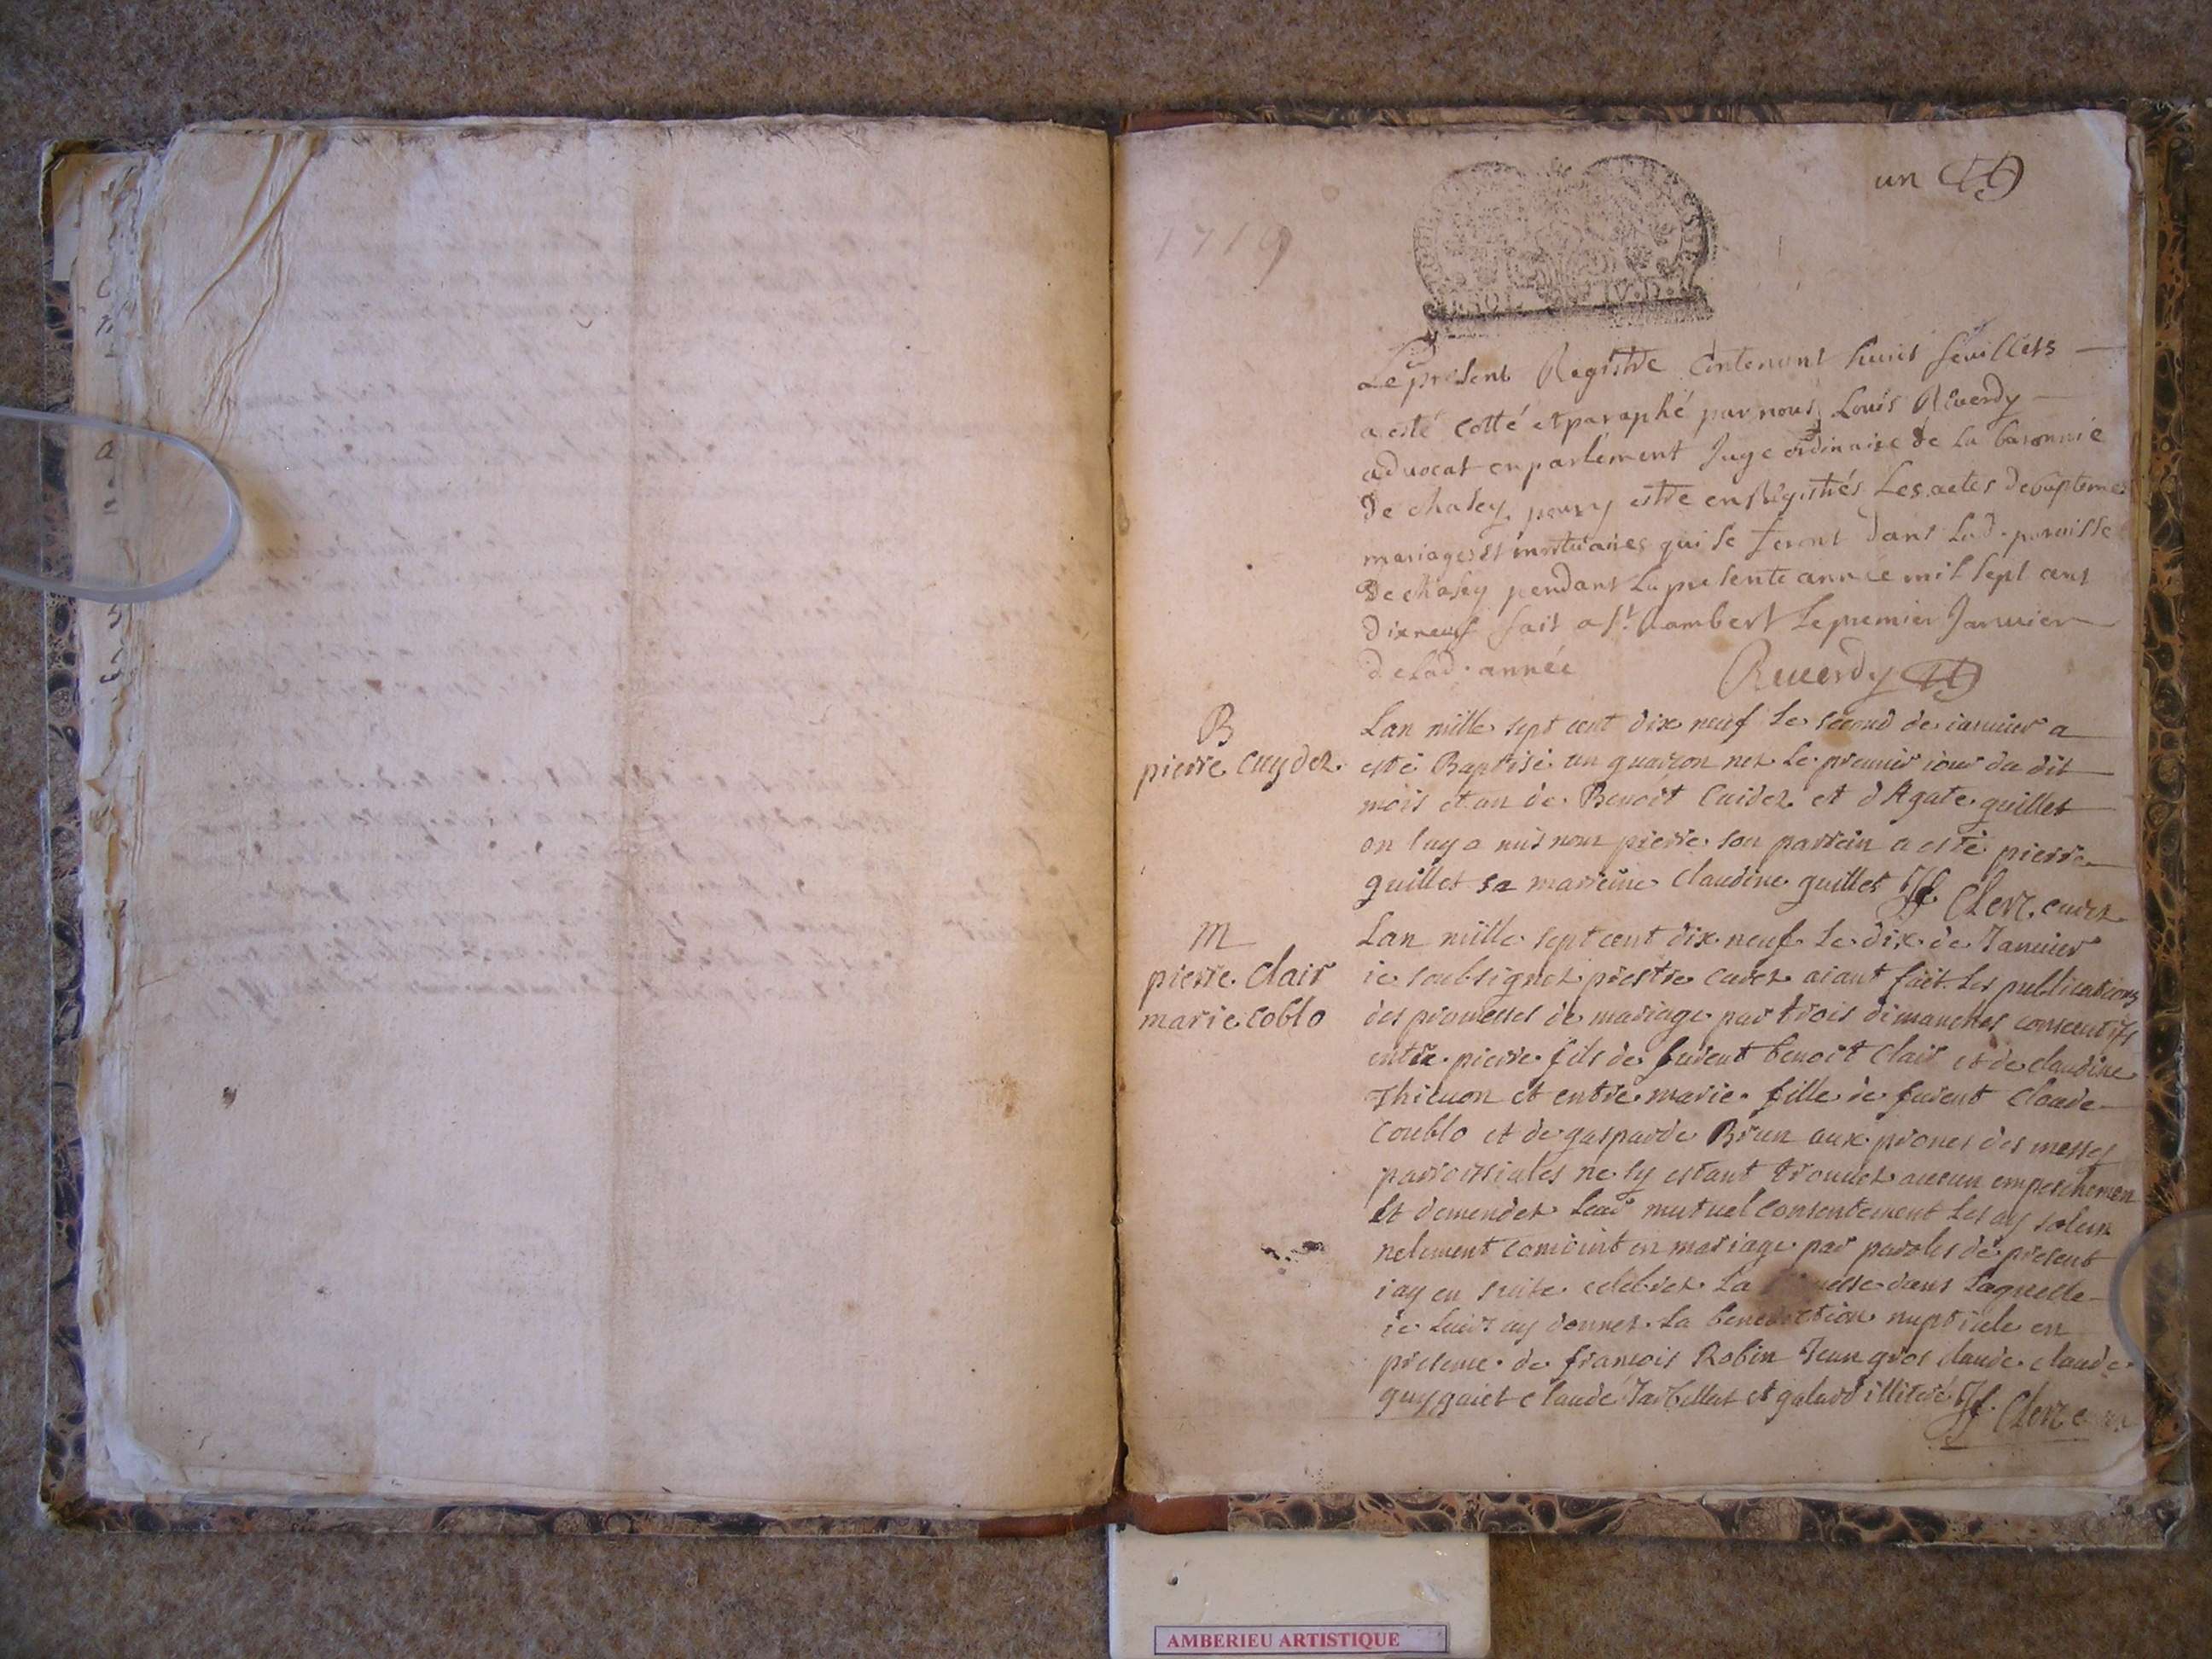 un
1719
Le present Registre Contenant huit feuillets
a esté cotté et paraphé par nous Louis Reverdy
advocat en parlement Juge ordinaire de la baronnie
De chasey pour y estre enRegistrés Les actes de baptemes
mariages et mortuaires qui se feront dans Lad. paroisse
De chasey pendant La presente année mil sept cent
dixneuf fait a St. Rambert Le premier Januier
de lad. année Reverdy
B
pierre Cuydez
Lan mille sept cent dix neuf le second de ianuier a
esté Baptisé un guarcon nez le premier iour du dit
mois et an de Benoit Cuidez et d Agate guillet
on luy a mis nom pierre son parrein a esté pierre
guillet sa marreine claudine guillet Jf Clerc curez
m
pierre Clair
marie coblo
Lan mille sept cent dix neuf le dix de Januier
ie soubsignez prestre curez aiant fait les publications
des promesses de mariage par trois dimanches consecutifs
entre pierre fils de furent benoit Clair et de claudine
Thieuon et entre marie fille de furent Claude
Coublo et de gasparde Brun aux prones des messes
parroissiales ne sy estant trouuez aucun empeschemen
et demendez leur mutuel consentement les ay solem
nelement conioint en mariage par paroles de present
iay en suite celebrez la messe dans laquelle
ie leur ay donnez la benediction nuptiale en
presence de francois Robin Jean gros claude claude
guygaiet claude Tarbellet et galard illiteré Jf. Clerc
AMBERIEU ARTISTIQUE